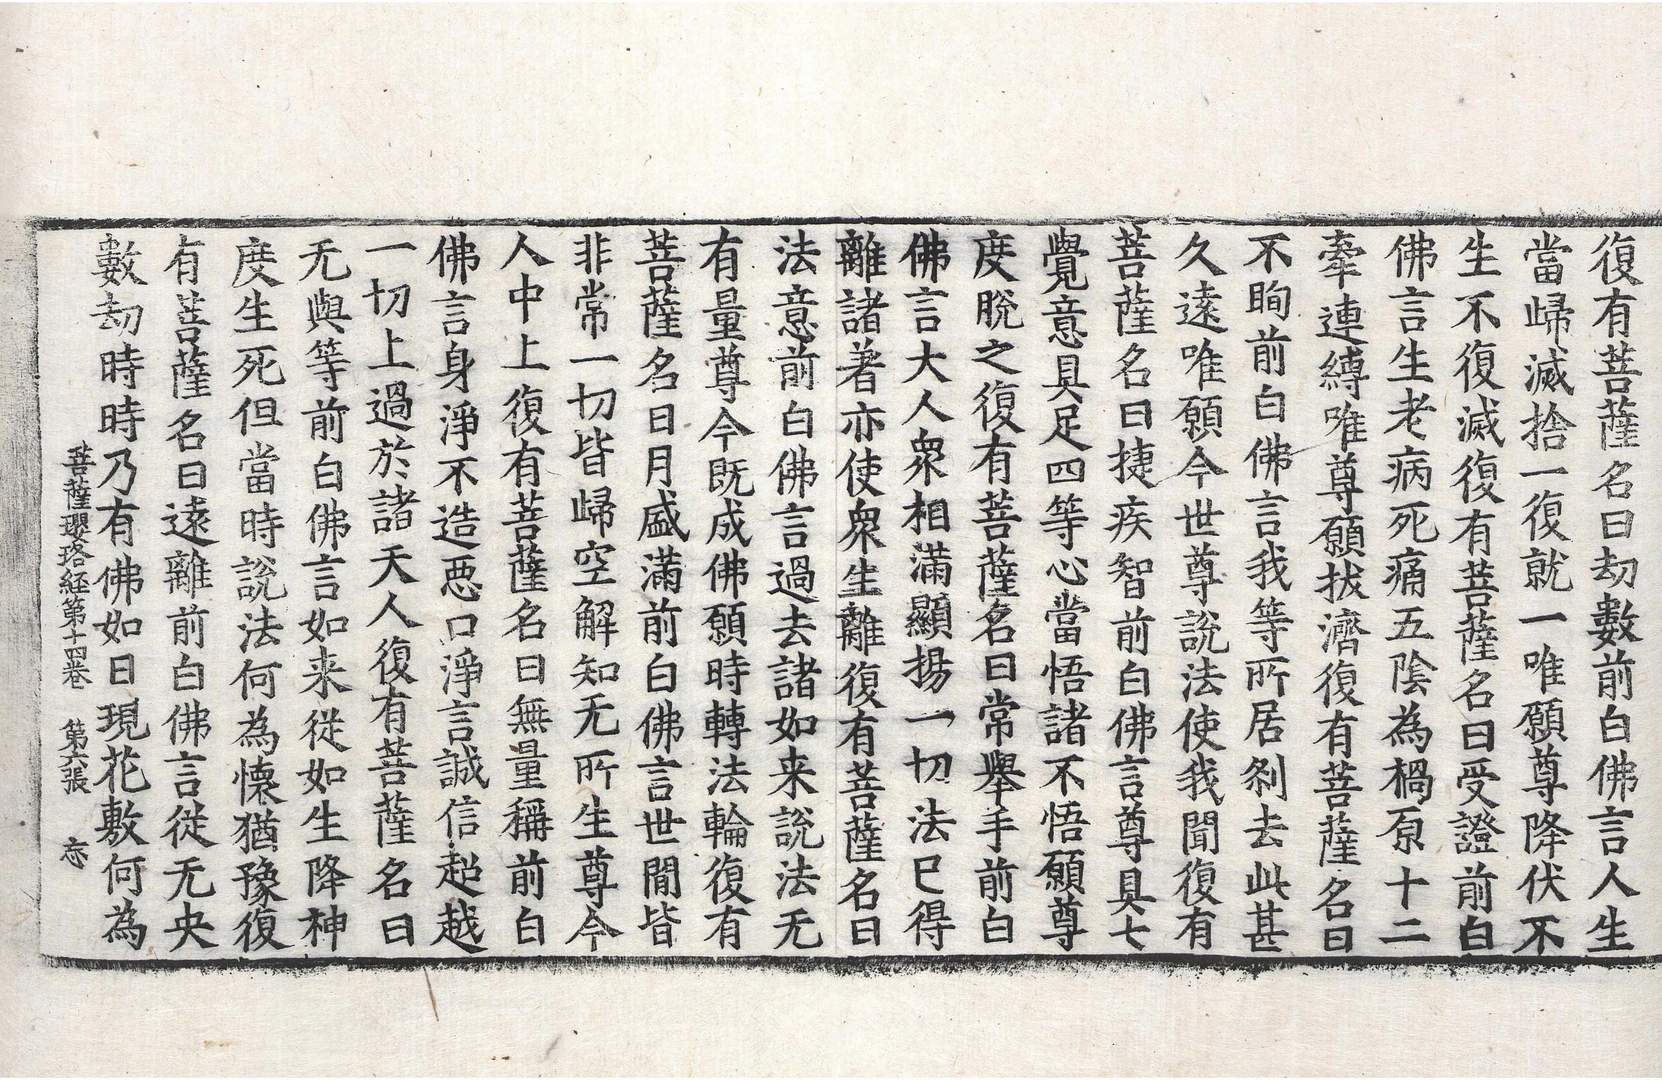 復有菩薩名曰劫數前白佛言人生
當歸滅捨一復就一唯願尊降伏不
生不復滅復有菩薩名曰受證前白
佛言生老病死痛五陰為榾原十二
牽連縛唯尊願拔濟復有菩薩名曰
不眴前白佛言我等所居刹去此甚
久遠唯願今世尊說法使我聞復有
菩薩名曰捷疾智前白佛言尊具七
覺意具足四等心當悟諸不悟願尊
度脫之復有菩薩名曰常舉手前白
佛言大人衆相滿顯揚一切法已得
離諸著亦使衆生離復有菩薩名曰
法意前白佛言過去諸如来說法无
有量尊今既成佛願時轉法輪復有
菩薩名日月盛滿前白佛言世間皆
非常一切皆歸空解知无所生尊今
人中上復有菩薩名曰無量稱前白
佛言身淨不造惡口淨言誠信超越
一切上過於諸天人復有菩薩名曰
无與等前白佛言如来從如生降神
度生死但當時說法何為懷猶豫復
有菩薩名曰遠離前白佛言從无央
數劫時時乃有佛如日現花敷何為
菩薩瓔珞經第十四卷 第六張 忝